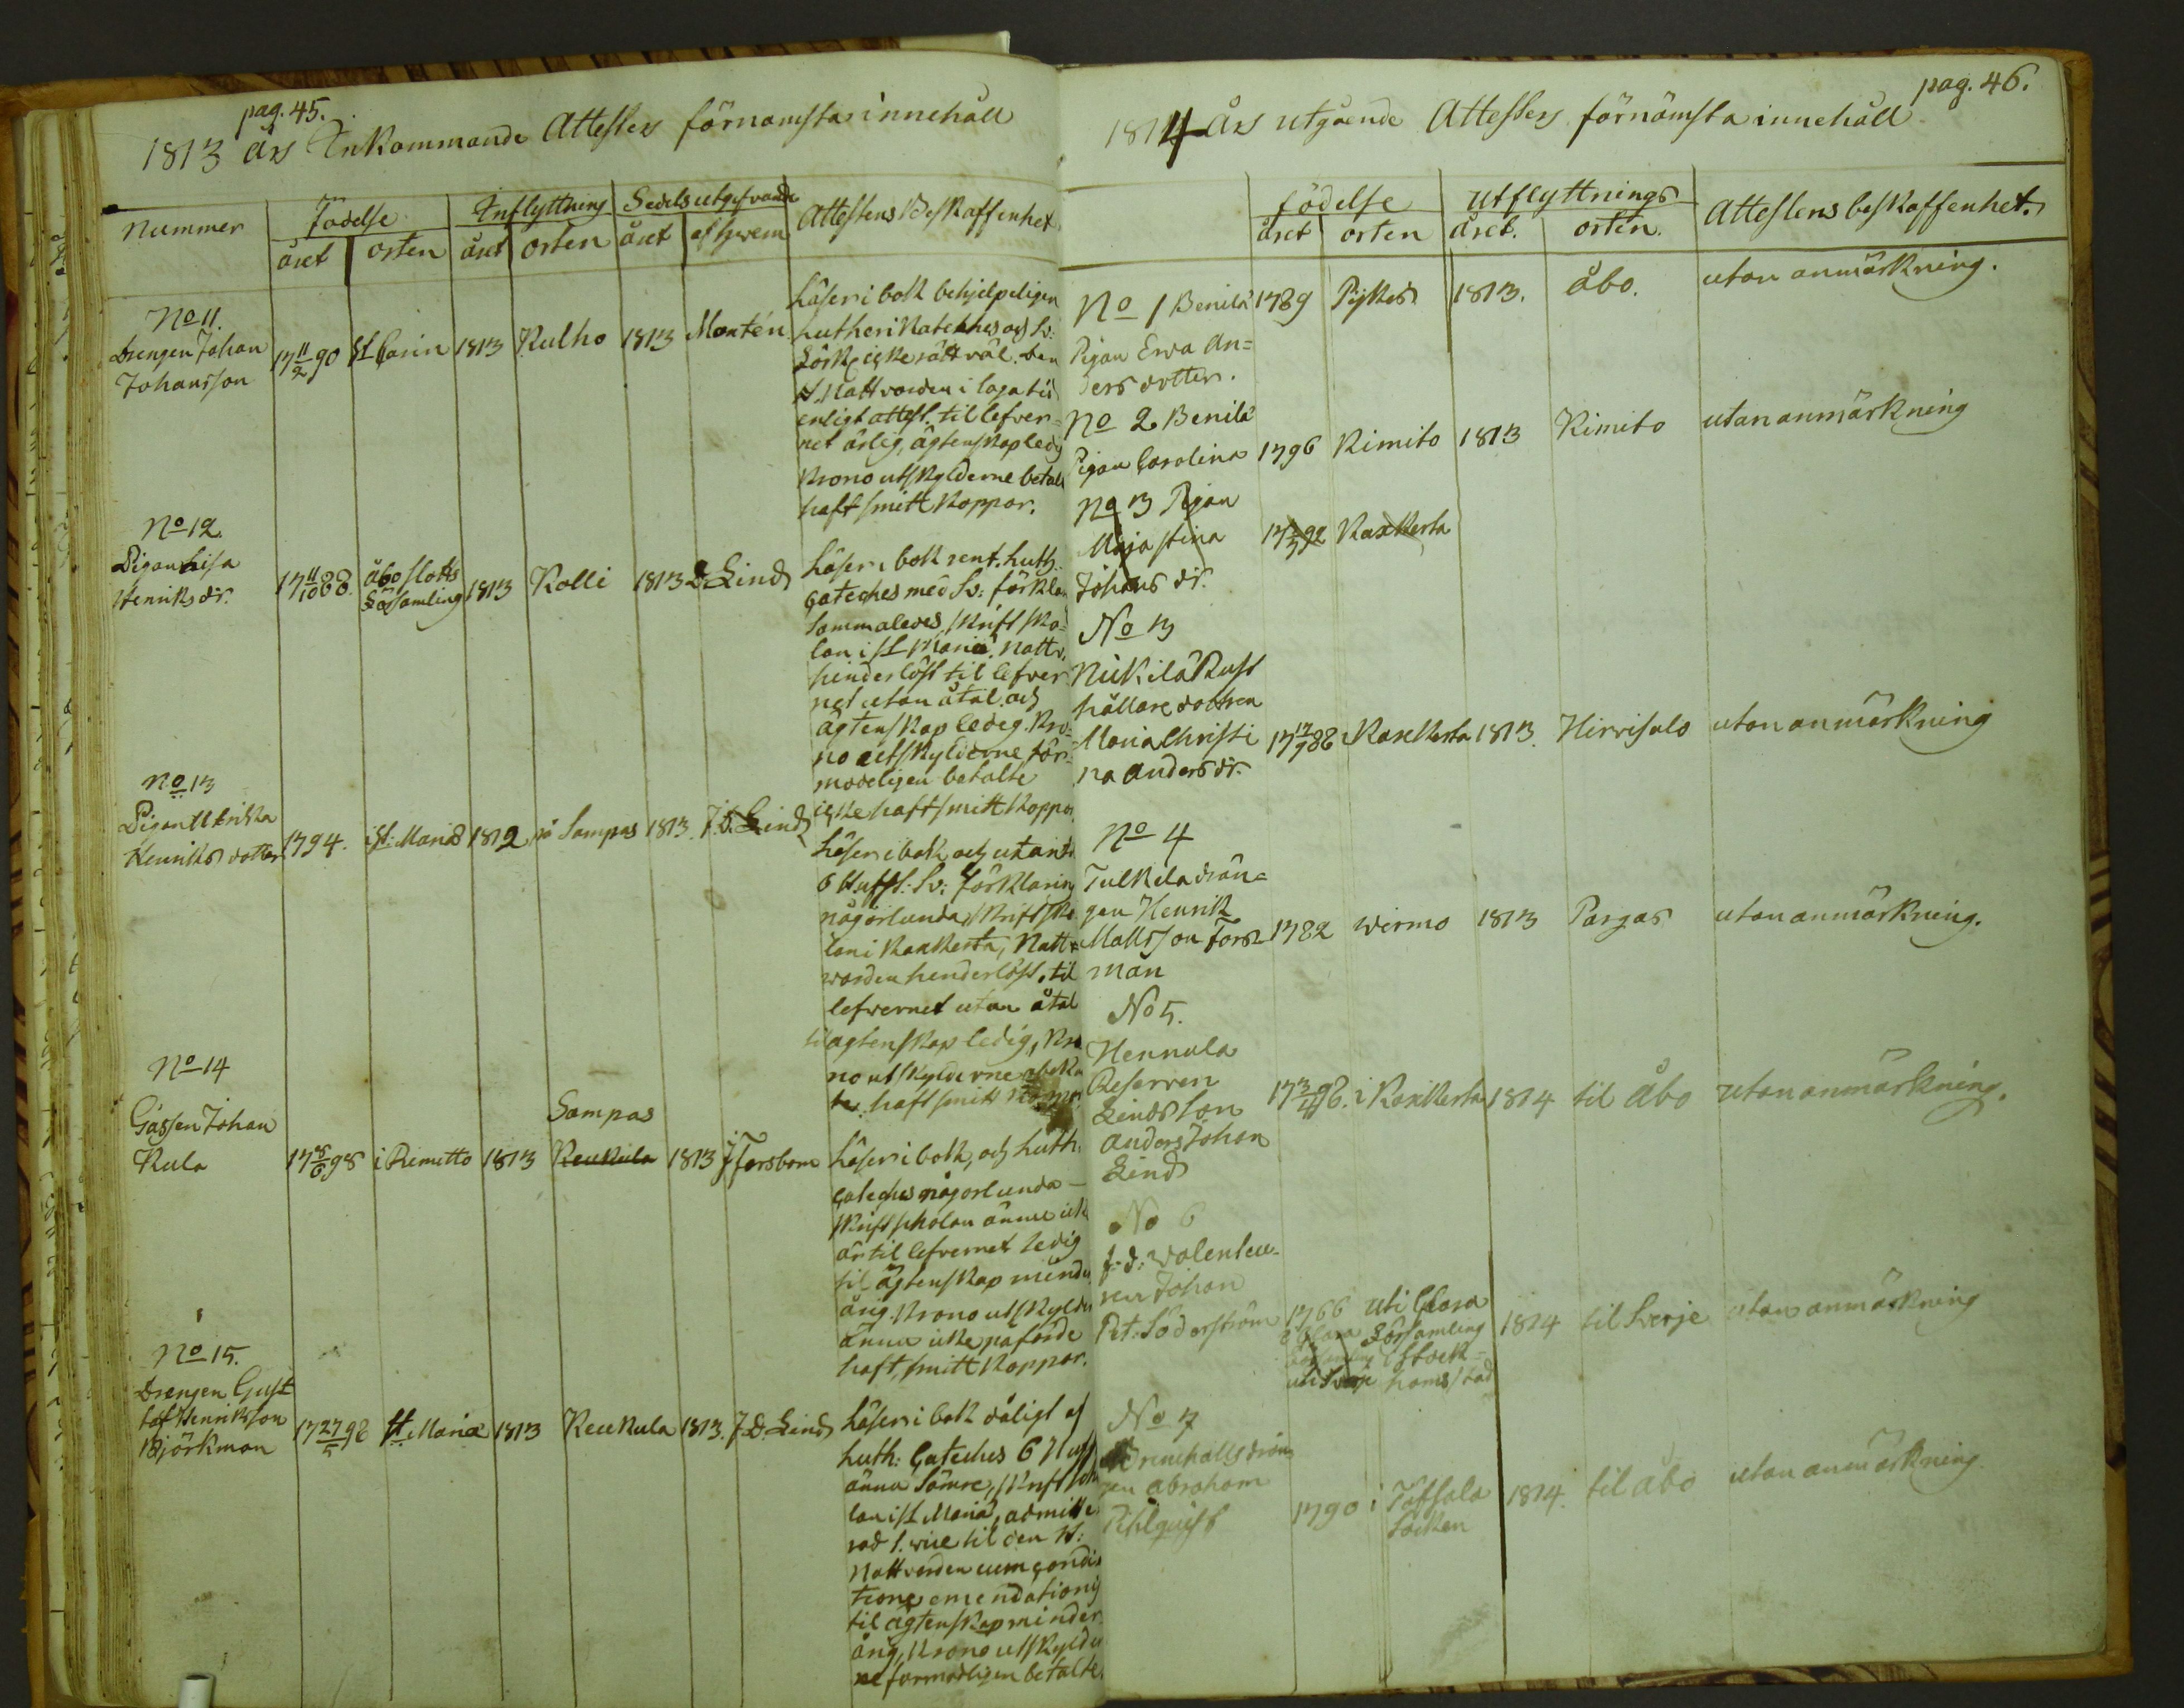 pag. 45.
1813 års Inkommande Attesters förnämsta innehåll
Nummer
Födelse
Inflyttning
Sedels utgifvande
Attestens Beskaffenhet
året
orten
året
orten
året
af hvem
No 11.
Drengen Johan
Johansson
17 11/2 90
St Carin
1813
Kulho
1813
Montén
Läser i bok behjelpeligen
Lutheri Kateches och Sv:
Förk: icke rätt väl. Den
H. Nattvarden i laga tid
enligt attest. til lefver-
net ärlig, ägtenskap ledig
Krono utskylderne betalt
haft smitt Koppor.
No 12.
Pigan Lisa
Henriks dr.
17 11/10 88.
Åbo slotts
Församling
1813
Kolli
1813
D. Lind
Läser i bok rent. Luth.
Cateches med Sv: förkla
sammaledes, skrift sko-
lan i St Mariæ. Nattv.
hinderlöst til lefver
net utan åtal och
ägtenskap ledig. Kro-
no utskylderne för-
modeligen betalte
icke haft smitt Koppor
No 13
Pigan Ulrika
Henriks dotter
1794.
i St. Mariæ
1812
på Sampas
1813.
J. D. Lind
Läser i bok och utantil
6 Hufst: Sv: förklaring
någorlunda, skrift sko
lan i Kakskerta, Natt
varden henderlöst. til
lefvernet utan åtal
til ägtenskap ledig, Kro
no utskylderne
haft smitt
No 14
Gåssen Johan
Kula
17 25/6 98
i Rimitto
1813
Sampas
Keukula
1813
J Forsbom
Läser i bok, och Luth.
Cateches någorlunda
skrift skolan ännu ick
är til lefvernet ledig
til ägtenskap minder
årig. Krono utskylder
ännu icke påförde
haft smitt Koppor.
No 15.
Drengen Gust
taf Henriksson
Björkman
17 27/5 98
St. Mariæ
1813
Keukula
1813.
J. D. Lind
Läser i bok dåligt af
Luth: Cateches 6 Hufs
ännu sämre, skrift sko
lan i St Mariæ, admitte
rad 1. resa til den H:
Nattvarden cum condi
tione emendationis
til ägtenskap minder
årig, Krono utskylder
ne formodligen betalte.
pag. 46.
1814 års utgående Attesters förnämsta innehåll
födelse
utflyttnings
Attestens beskaffenhet.
året
orten
året.
orten.
No 1 Benilä
Pigan Ewa An=
ders dotter.
1789
Pijkes
1813.
Åbo.
utan anmärkning.
No 2 Benilä
Pigan Carolina
1796
Kimito
1813
Kimito
utan anmärkning
No 3 Pigan
Maja Stina
Johans dr.
Kakskerta
No 3
Nickilä Rust
hållare dottren
Maria Christi
na Anders dr.
17 17/7 88
Kakskerta
1813.
Hirvisalo
utan anmärkning
No 4
Tulkila drän=
gen Henrik
Mattsson Fors
man
1782
Wirmo
1813
Pargas
utan anmärkning.
No 5.
Hennala
Reserven
Linds son
Anders Johan
Lind
17 3/4 98.
i Kakskerta
1814
til Åbo
utan anmärkning.
No 6
f. d. Volenteu-
ren Johan
Pet. Söderström
1766
uti Clara
Församling
i Stock-
homs stad
1814
til Sverje
utan anmärkning
No 7
drän
gen Abraham
Pihlquist
1790
i Töfsala
Socken
1814.
til Åbo
utan anmärkning.